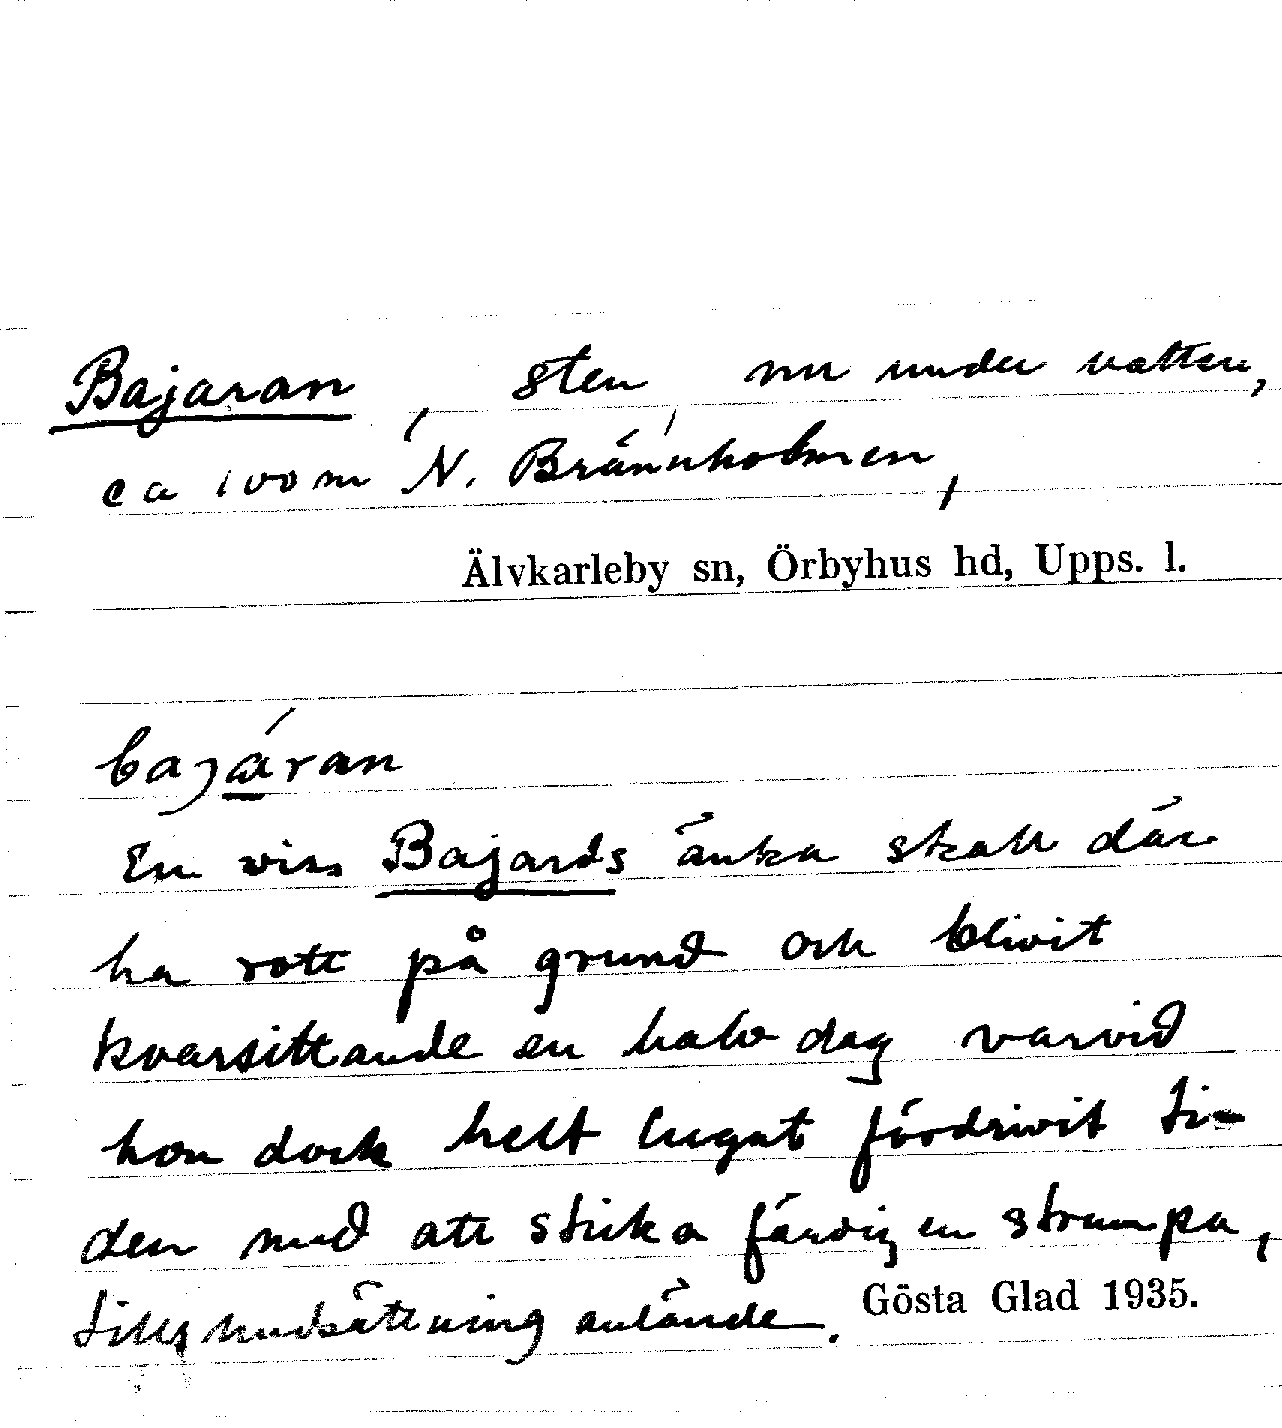 Bajaran, sten, nu under vatten,
ca 100 m N. Brännholmen,
Älvkarleby sn, Örbyhus hd, Upps. l.
bajáran
En viss Bajards änka skall där
ha rott på grund och blivit
kvarsittande en halv dag varvid
hon dock helt lugnt fördrivit ti-
den med att sticka färdig en strumpa,
tills undsättning anlände.
Gösta Glad 1935.